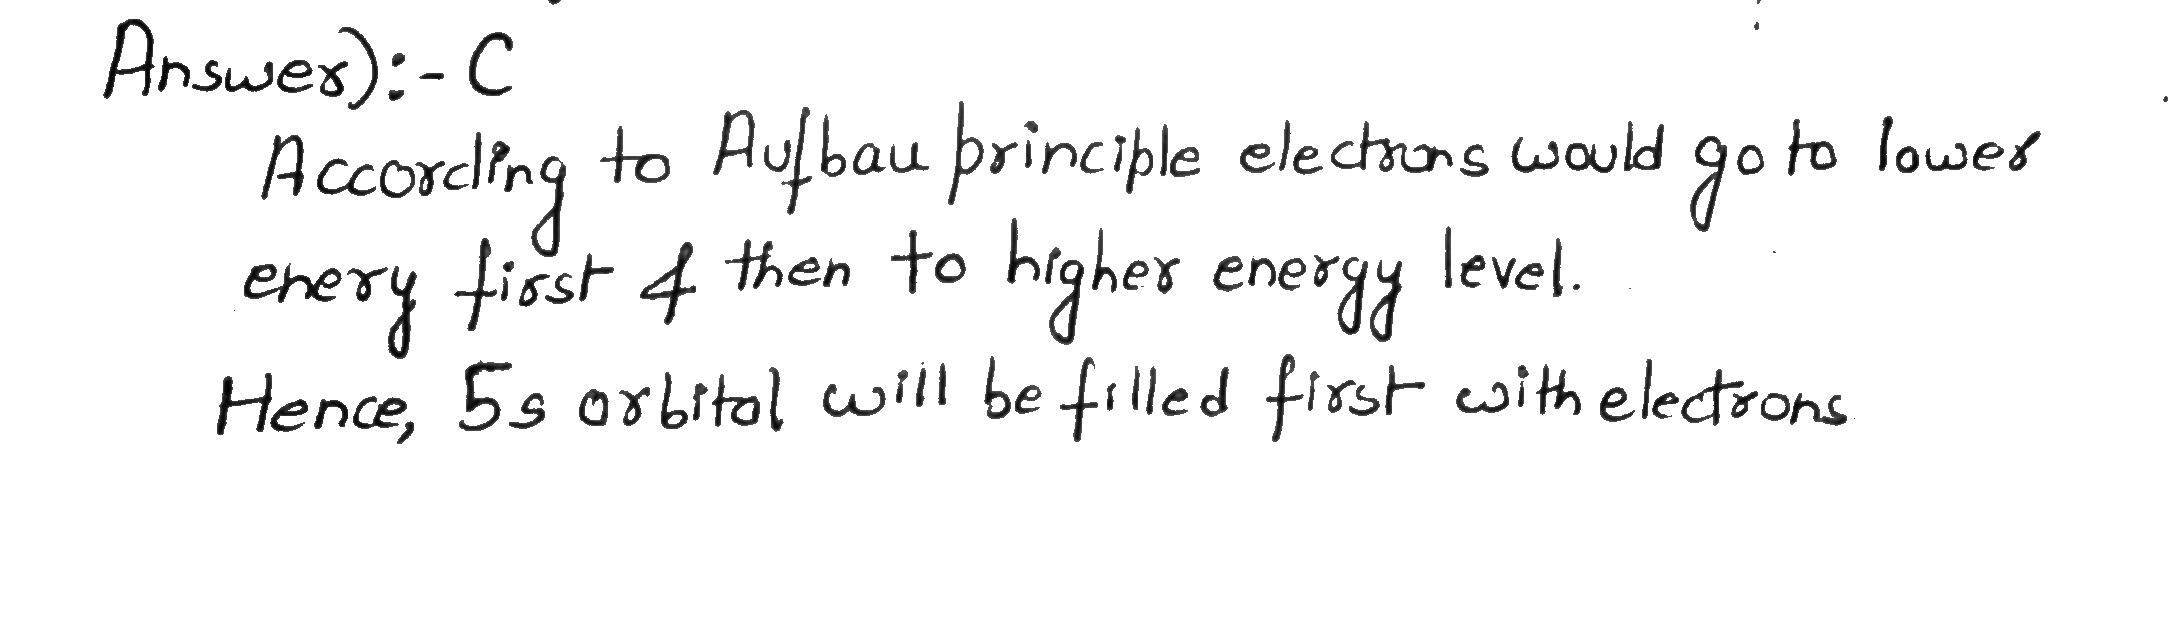 Answer):- C
According to Aufbau principle electrons would go to lower
enery first & then to higher energy level.
Hence, 5s orbital will be filled first with electrons